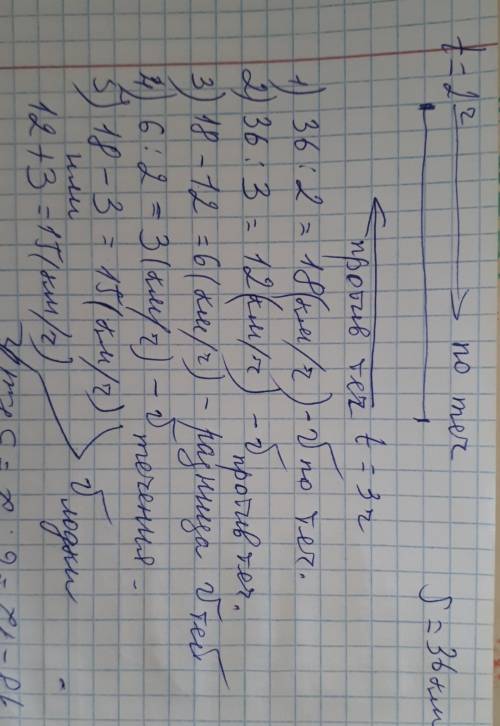 t = 2ч
по теч
S = 36 км
против теч t = 3ч
1) 36 : 2 = 18 (км/ч) - v по теч.
2) 36 : 3 = 12 (км/ч) - v против теч.
3) 18 - 12 = 6 (км/ч) - разница v теч
4) 6 : 2 = 3 (км/ч) - v течения -
5) 18 - 3 = 15 (км/ч)
или
12 + 3 = 15 (км/ч)
v лодки